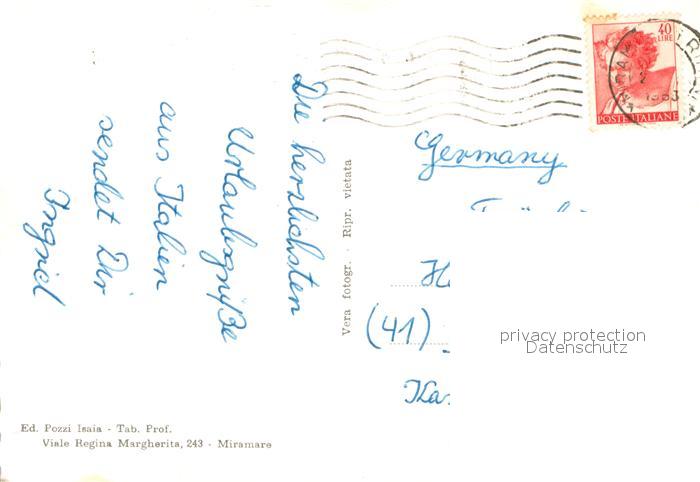 Die herzlichsten
Urlaubsgrüße
aus Italien
sendet Dir
Ingrid
Ed. Pozzi Isaia - Tab. Prof.
Viale Regina Margherita, 243 - Miramare
Vera fotogr. - Ripr. vietata
40
LIRE
POSTE ITALIANE
1963
Germany
(41)
privacy protection
Datenschutz